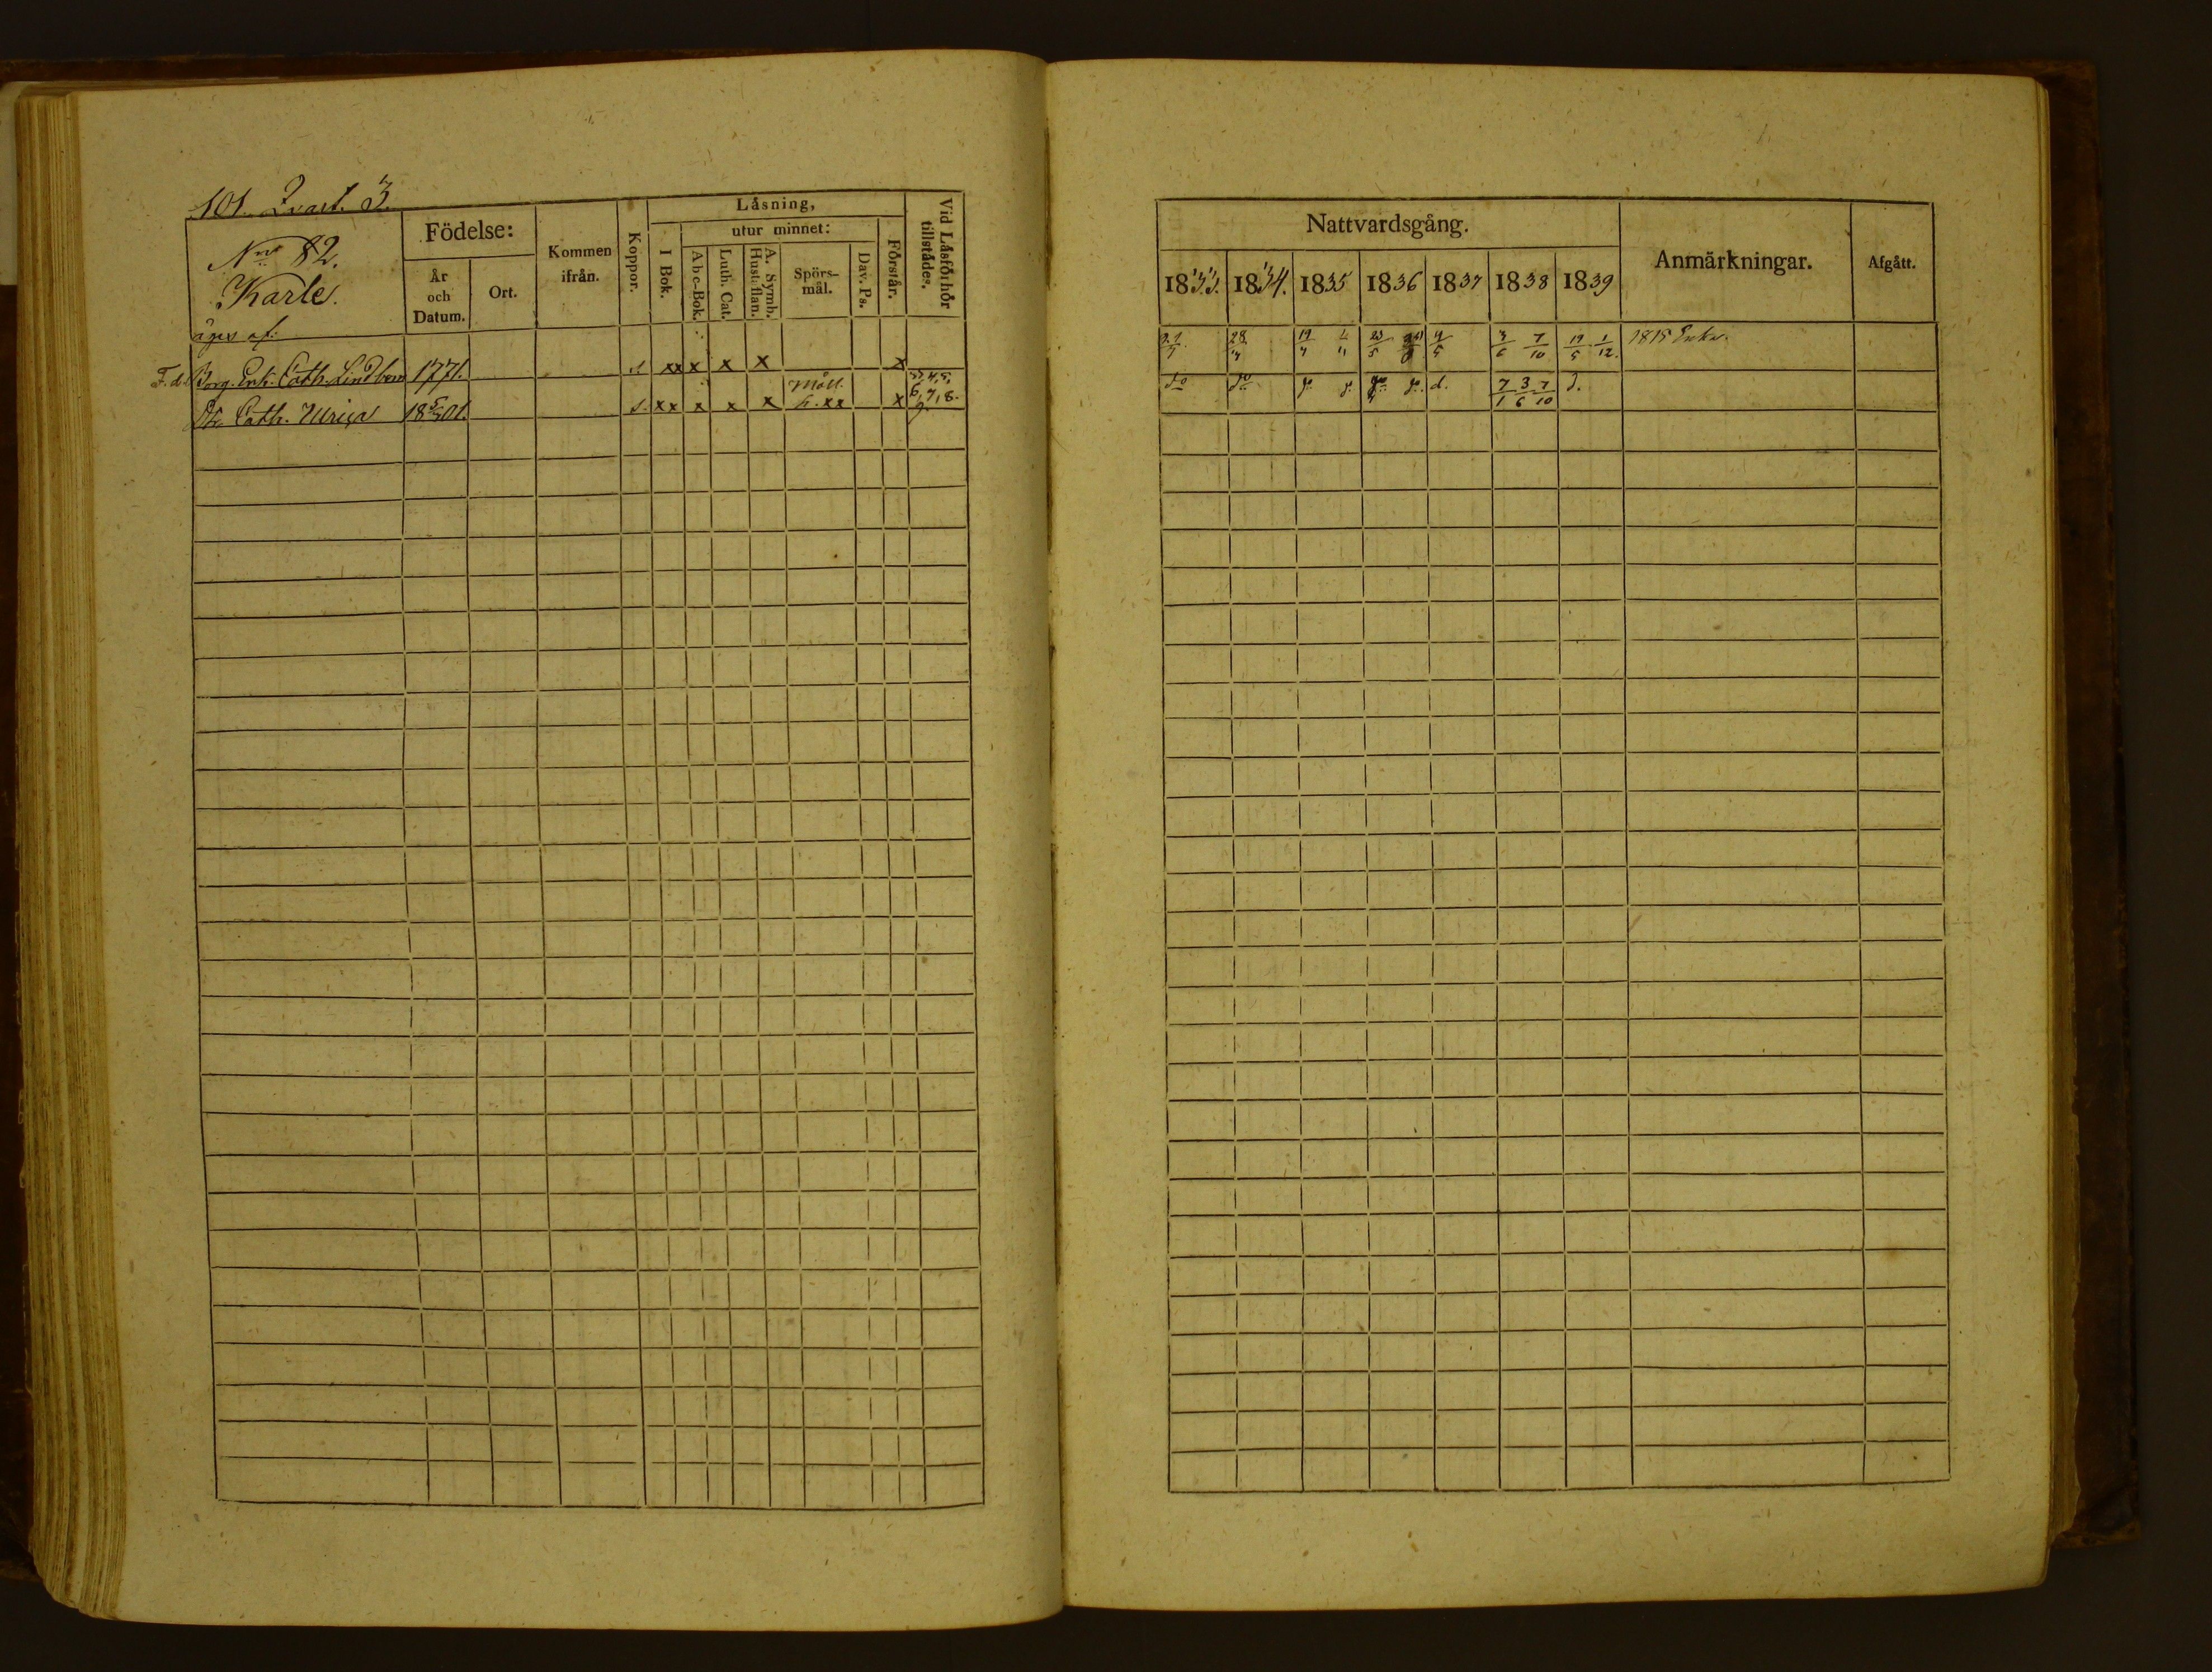 101. Qvart. 3.
Nro 82.
Karle.
äges af:
Födelse:
År och Datum.
Ort.
Kommen ifrån.
Koppor.
Läsning,
I Bok.
utur minnet:
Abc-Bok.
Luth. Cat.
A. Symb. Hustaflan.
Spörs-mål.
Dav. Ps.
Förstår.
Vid Läsförhör tillstädes.
F.d. Borg. Enk. Cath. Lindbom 1771. s xx x x x x
Dr. Cath. Ulrica 18 5/5 01. s. xx x x x Moll. h. xx x 3, 4, 5, 6, 7, 8. 9.
Nattvardsgång.
1833. 1834. 1835 1836 1837 1838 1839
Anmärkningar.
Afgått.
28/4 19/4 23/5 4/5 3/6 7/10 19/5 1/12. 1815 Enka.
do do d. 7/1 3/6 7/10 d.